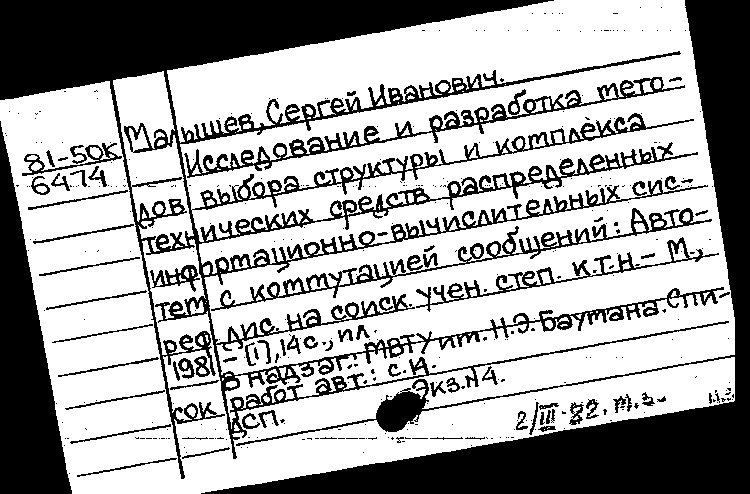 81-50К
6474
Малышев, Сергей Иванович.
Исследование и разработка мето-
дов выбора структуры и комплекса
технических средств распределенных
информационно-вычислительных сис-
тем с коммутацией сообщений: Авто-
реф. дис. на соиск. учен. степ. к.т.н. - М.,
1981 - [1], 14 с., ил.
В надзаг.: МВТУ им. Н.Э. Баумана. Спи-
сок работ авт.: с. 14.
ДСП. Экз. N4.
2/III-82. м.з.